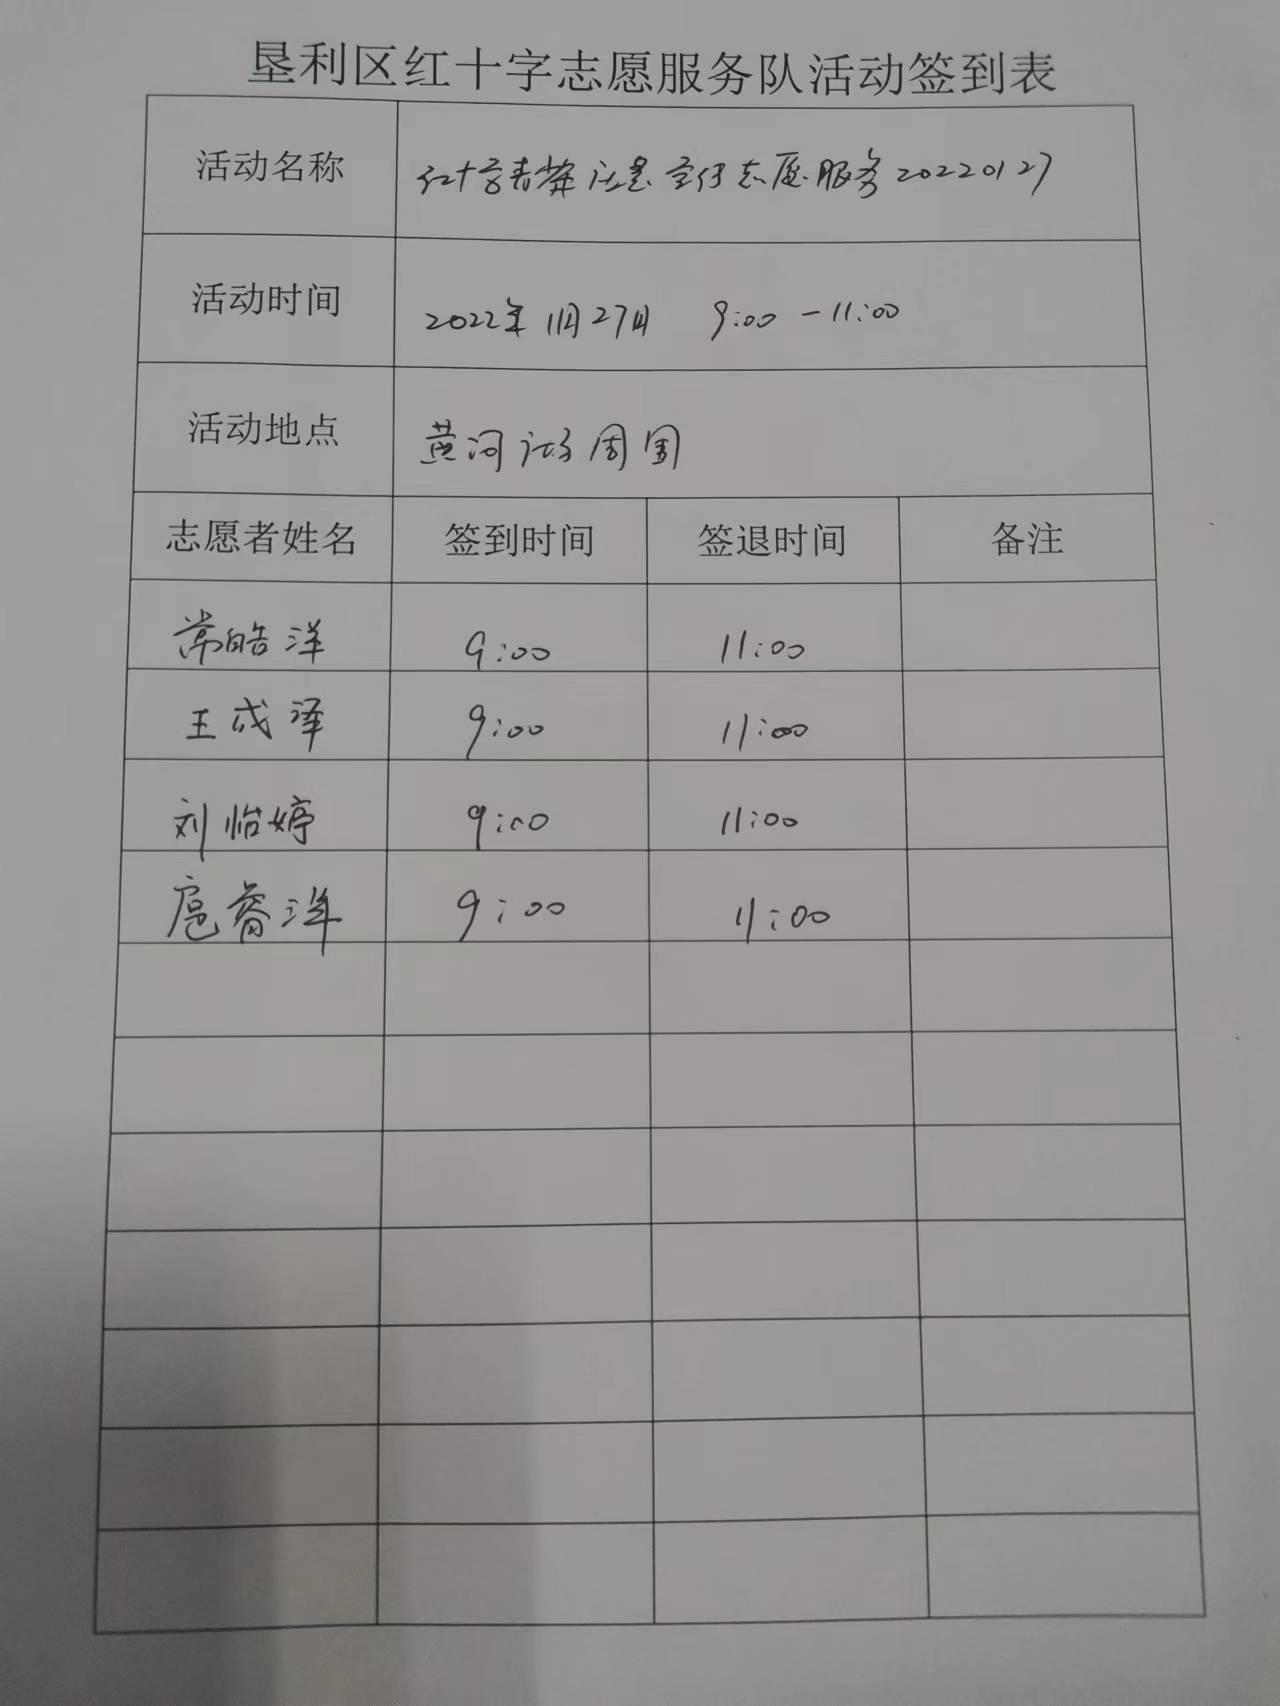 垦利区红十字志愿服务队活动签到表
活动名称 红十字青莘 宣传志愿服务20220127
活动时间 2022年1月27日 9:00-11:00
活动地点 黄河 周围
志愿者姓名 签到时间 签退时间 备注
常皓洋 9:00 11:00
王成泽 9:00 11:00
刘怡婷 9:00 11:00
扈睿洋 9:00 11:00